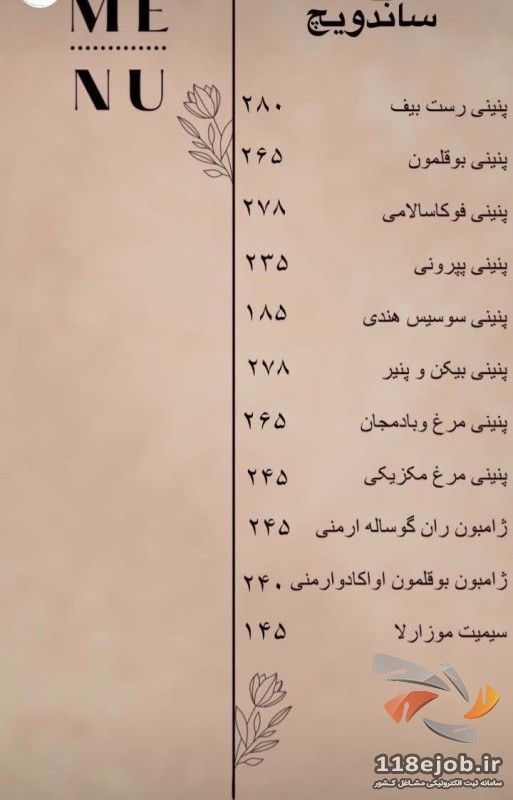 ME
NU
ساندویچ
پنینی رست بیف ۲۸۰
پنینی بوقلمون ۲۶۵
پنینی فوکاسالامی ۲۷۸
پنینی پپرونی ۲۳۵
پنینی سوسیس هندی ۱۸۵
پنینی بیکن و پنیر ۲۷۸
پنینی مرغ وبادمجان ۲۶۵
پنینی مرغ مکزیکی ۲۴۵
ژامبون ران گوساله ارمنی ۲۴۵
ژامبون بوقلمون اواکادوارمنی ۲۴۰
سیمیت موزارلا ۱۴۵
118ejob.ir
سامانه ثبت الکترونیکی مشاغل کشور